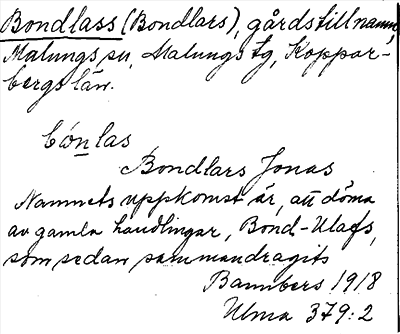 Bondlass (Bondlars), gårdstillnamn,
Malungs sn, Malungs tg, Koppar-
bergs län.
bo͝nlas
Bondlars Jonas
Namnets uppkomst är, att döma
av gamla handlingar, Bond-Olafs,
som sedan sammandragits
Bannbers 1918
Ulma 379:2